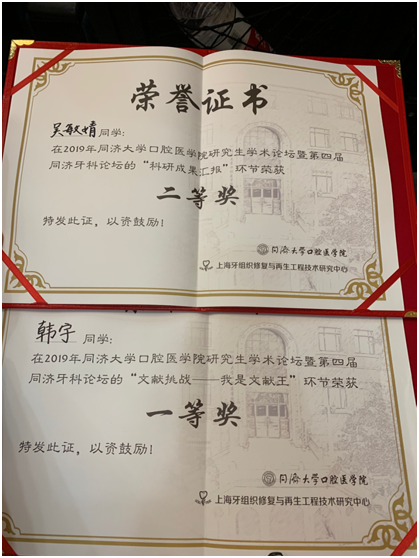 荣誉证书
吴敏婧同学:
在2019年同济大学口腔医学院研究生学术论坛暨第四届
同济牙科论坛的“科研成果汇报”环节荣获
二等奖
特发此证，以资鼓励！
同济大学口腔医学院
上海牙组织修复与再生工程技术研究中心
韩宇 同学:
在2019年同济大学口腔医学院研究生学术论坛暨第四届
同济牙科论坛的“文献挑战——我是文献王”环节荣获
一等奖
特发此证，以资鼓励！
同濟大学口腔医学院
上海牙组织修复与再生工程技术研究中心